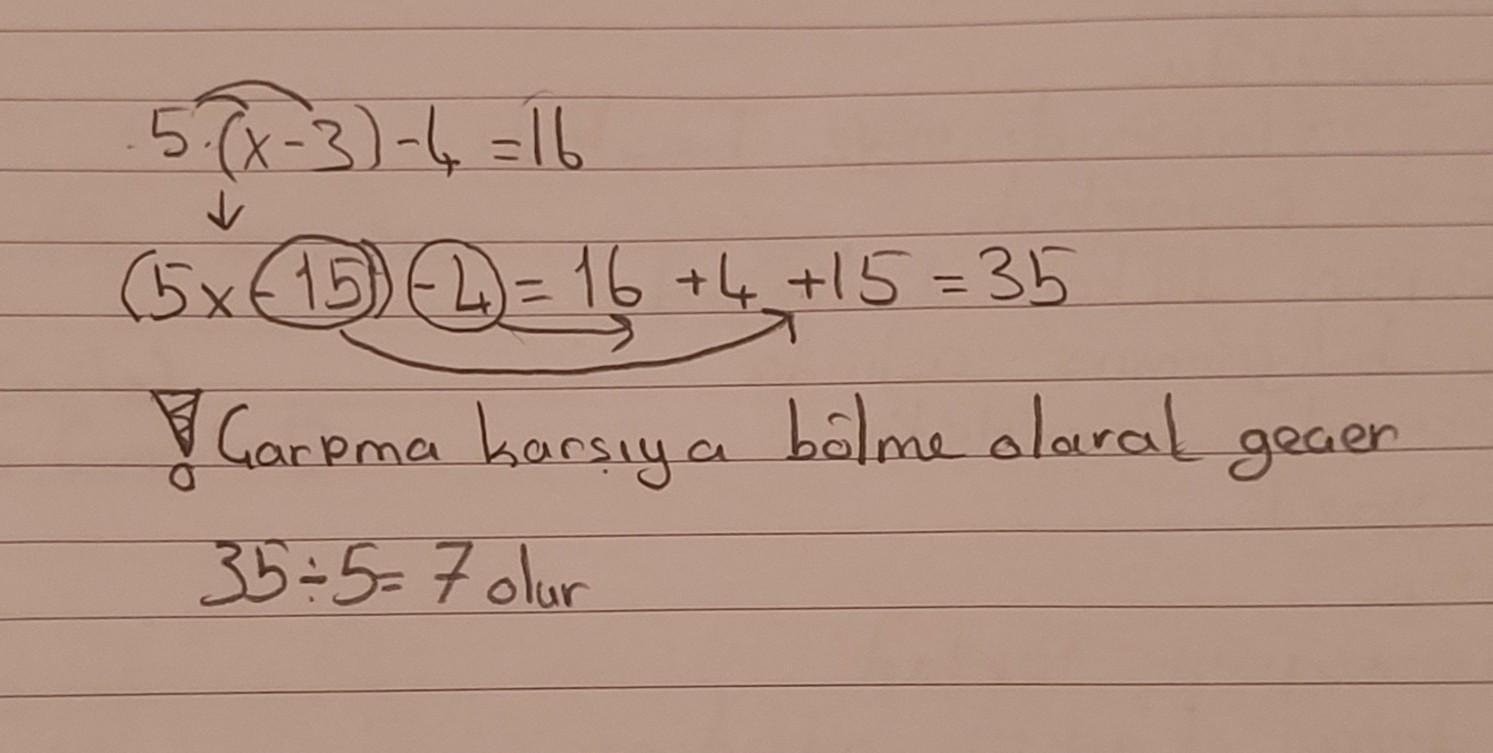 5.(x-3)-4 =16
(5x-15)-4= 16 +4 +15 = 35
! Carpma karşıya bölme olarak gecer
35÷5= 7 olur